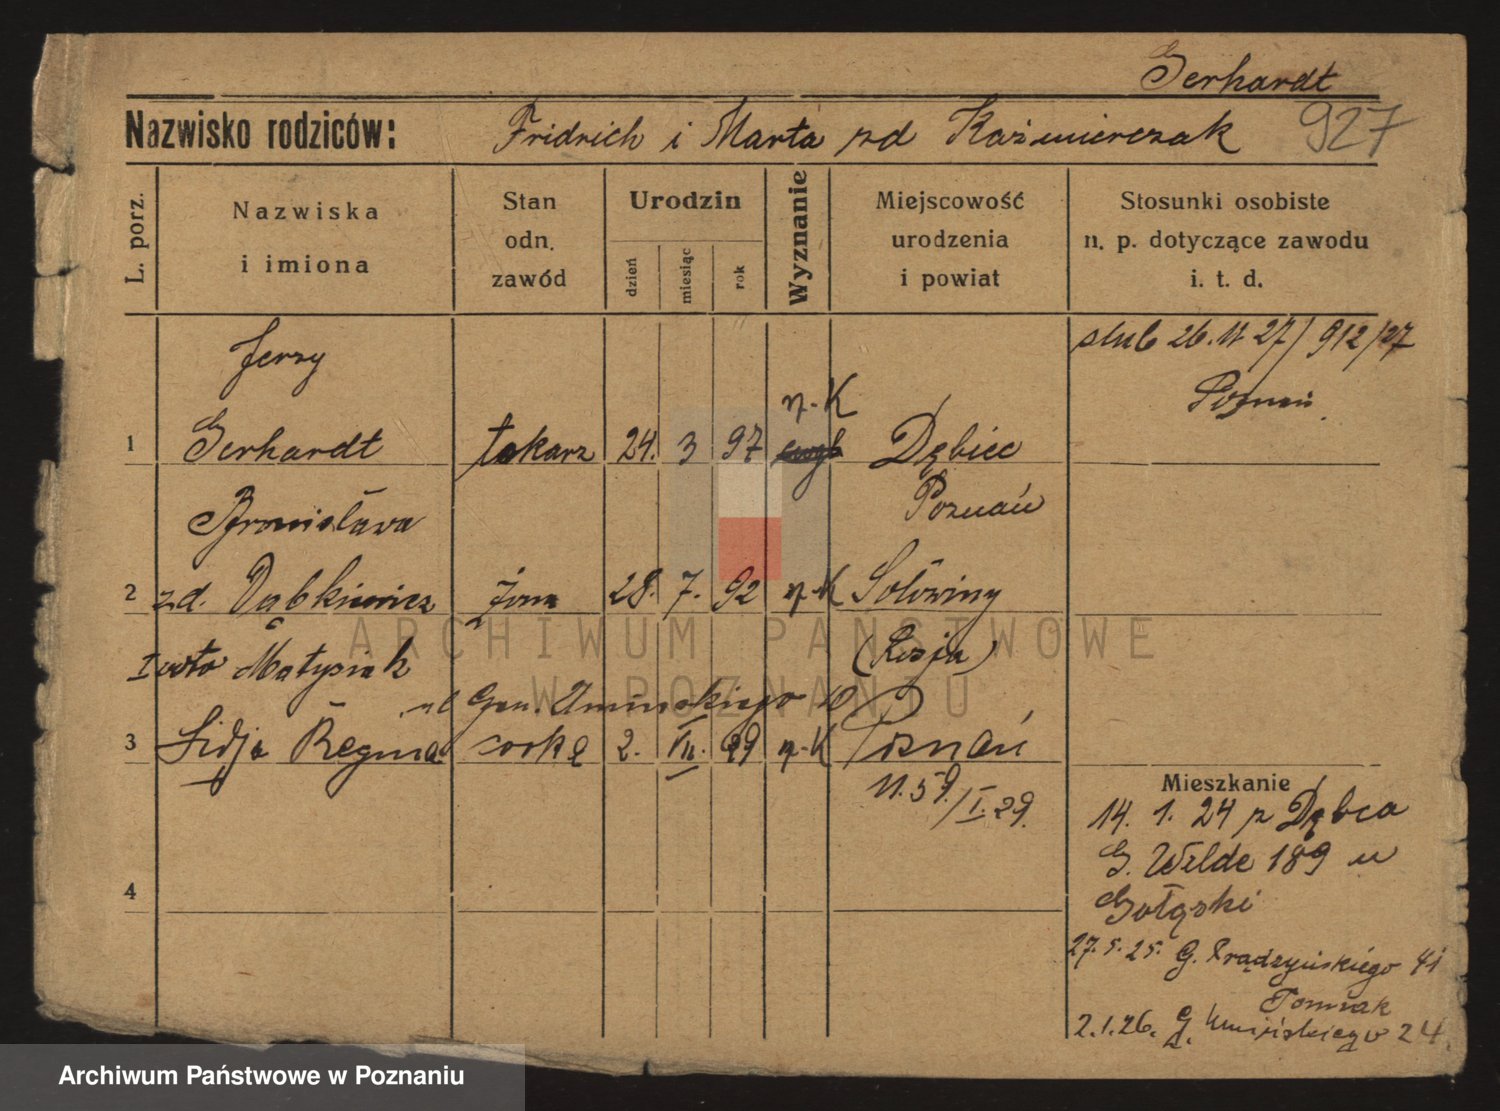 Gerhardt
Nazwisko rodziców: Fridrich i Marta zd Kaźmierczak 927
L. porz.
Nazwiska i imiona
Stan odn. zawód
Urodzin
dzień
miesiąc
rok
Wyznanie
Miejscowość urodzenia i powiat
Stosunki osobiste n. p. dotyczące zawodu i. t. d.
Jerzy
ślub 26.11 27/ 912/27
Poznań
r.-K
1 Gerhardt tokarz 24. 3 97 ewgl Dębiec
Bronisława Poznań
2 zd. Dąbkiewicz żona 28. 7. 92 r.-K Sołowiny
I voto Matysiak (Rosja)
ul Gen. Umińskiego 10
3 Lidja Regina córka 2. VII. 29 r.-K Poznań
Mieszkanie
14. 1. 24 z Dębca
G. Wilde 189 u
4 Gołąski
27.5.25. G. Prądzyńskiego 41
Tomiak
2.1.26. G. Umińskiego 24.
ARCHIWUM PAŃSTWOWE
W POZNANIU
Archiwum Państwowe w Poznaniu